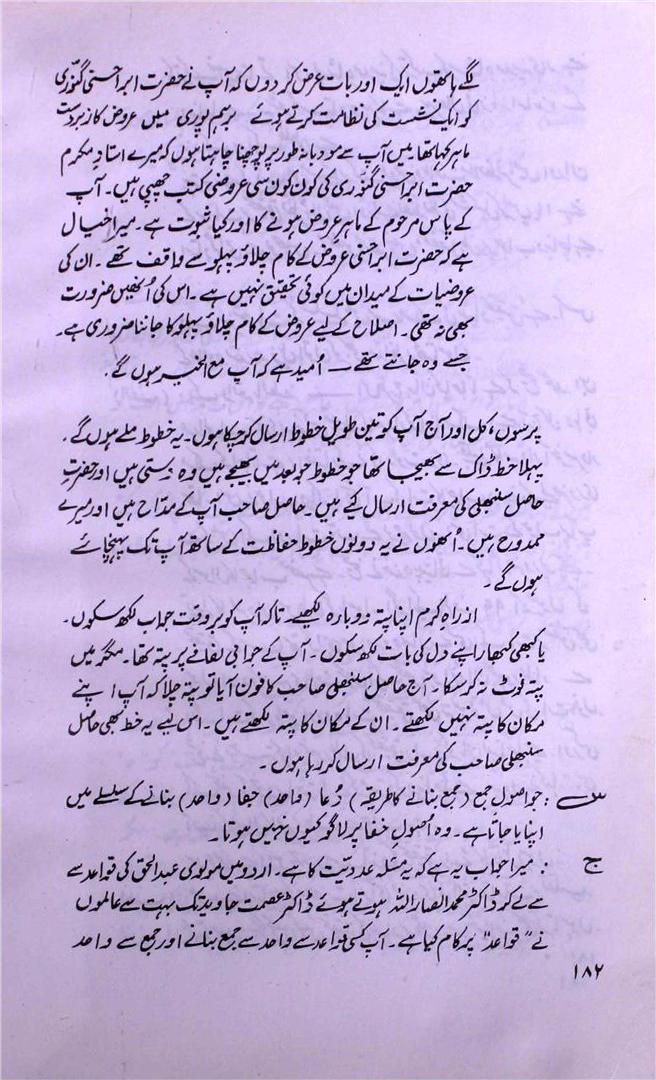 لگے ہاتھوں ایک اور بات عرض کر دوں کہ آپ نے حضرت ابر احسنی گنوری
کو ایک نشست کی نظامت کرتے ہوئے برہم پوری میں عروض کا زبردست
ماہر کہا تھا میں آپ سے مودبانہ طور پر پوچھنا چاہتا ہوں کہ میرے استادِ مکرم
حضرت ابر احسنی گنوری کی کون کون سی عروضی کتب چھپی ہیں۔ آپ
کے پاس مرحوم کے ماہر عروض ہونے کا اور کیا ثبوت ہے۔ میرا خیال
ہے کہ حضرت ابر احسنی عروض کے کام چلاؤ پہلو سے واقف تھے۔ ان کی
عروضیات کے میدان میں کوئی تحقیق نہیں ہے۔ اس کی اُنھیں ضرورت
بھی نہ تھی۔ اصلاح کے لیے عروض کے کام چلاؤ پہلو کا جاننا ضروری ہے۔
جسے وہ جانتے تھے — اُمید ہے کہ آپ مع الخیر ہوں گے۔
پرسوں، کل اور آج آپ کو تین طویل خطوط ارسال کر چکا ہوں۔ یہ خطوط ملے ہوں گے۔
پہلا خط ڈاک سے بھیجا تھا جو خطوط بعد میں بھیجے ہیں وہ دستی ہیں اور حضرت
حاصل سنبھلی کی معرفت ارسال کیے ہیں۔ حاصل صاحب آپ کے مدّاح ہیں اور میرے
ممدوح ہیں۔ اُنھوں نے یہ دونوں خطوط حفاظت کے ساتھ آپ تک پہنچائے
ہوں گے۔
از راہِ کرم اپنا پتہ دوبارہ لکھیے تاکہ آپ کو بروقت جواب لکھ سکوں۔
یا کبھی کبھار اپنے دل کی بات لکھ سکوں۔ آپ کے جوابی لفافے پر پتہ تھا۔ مگر میں
پتہ نوٹ نہ کر سکا۔ آج حاصل سنبھلی صاحب کا فون آیا تو پتہ چلا کہ آپ اپنے
مکان کا پتہ نہیں لکھتے۔ ان کے مکان کا پتہ لکھتے ہیں۔ اس لیے یہ خط بھی حاصل
سنبھلی صاحب کی معرفت ارسال کر رہا ہوں۔
س : جو اصولِ جمع (جمع بنانے کا طریقہ) دُعا (واحد) جفا (واحد) بنانے کے سلسلے میں
اپنایا جاتا ہے۔ وہ اُصول خفا پر لاگو کیوں نہیں ہوتا۔
ج : میرا جواب یہ ہے کہ یہ مسئلہ عددیّت کا ہے۔ اردو میں مولوی عبدالحق کی قواعد سے
سے لے کر ڈاکٹر محمد انصار اللہ ہوتے ہوئے ڈاکٹر عصمت جاوید تک بہت سے عالموں
نے "قواعد" پر کام کیا ہے۔ آپ کسی قواعد سے واحد سے جمع بنانے اور جمع سے واحد
۱۸۲